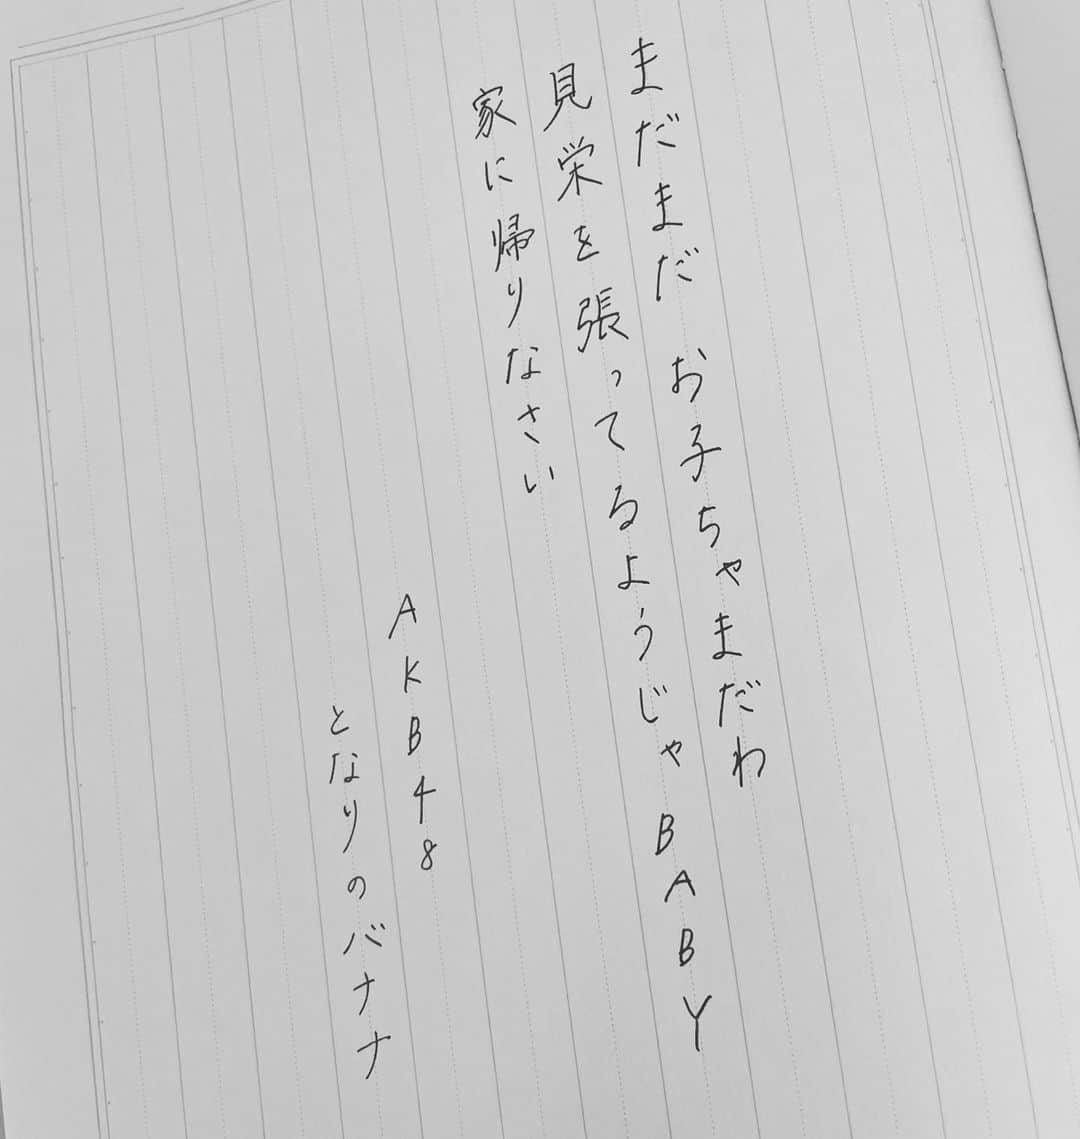 まだまだ お子ちゃまだわ
見栄を張ってるようじゃ BABY
家に帰りなさい
AKB48
となりのバナナ